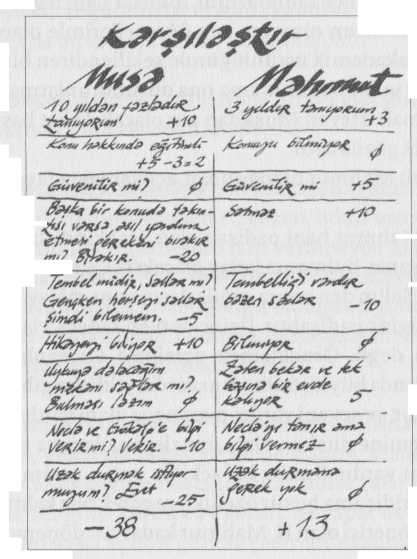 Karşılaştır
Musa
Mahmut
10 yıldan fazladır
tanıyorum +10
3 yıldır tanıyorum
+3
Konu hakkında eğitimli
+5 -3=2
Konuyu bilmiyor ø
Güvenilir mi? ø
Güvenilir mi +5
Başka bir konuda takın-
tısı varsa asıl yardım
etmesi gerekeni bırakır
mı? Bırakır. -20
Satmaz +10
Tembel midir, satlar mı?
Gençken herşeyi satlar
şimdi bilemem. -5
Tembelliği vardır
bazen satlar -10
Hikayeyi biliyor +10
Bilmiyor ø
uykuya dalacağım
mekânı sağlar mı?
Bulması lazım ø
Zaten bekâr ve tek
başına bir evde
kalıyor 5
Necla ve Gökalp'e bilgi
verir mi? Verir. -10
Necla'yı tanır ama
bilgi vermez ø
Uzak durmak istiyor
muyum? Evet -25
Uzak durmama
gerek yok ø
-38
+13